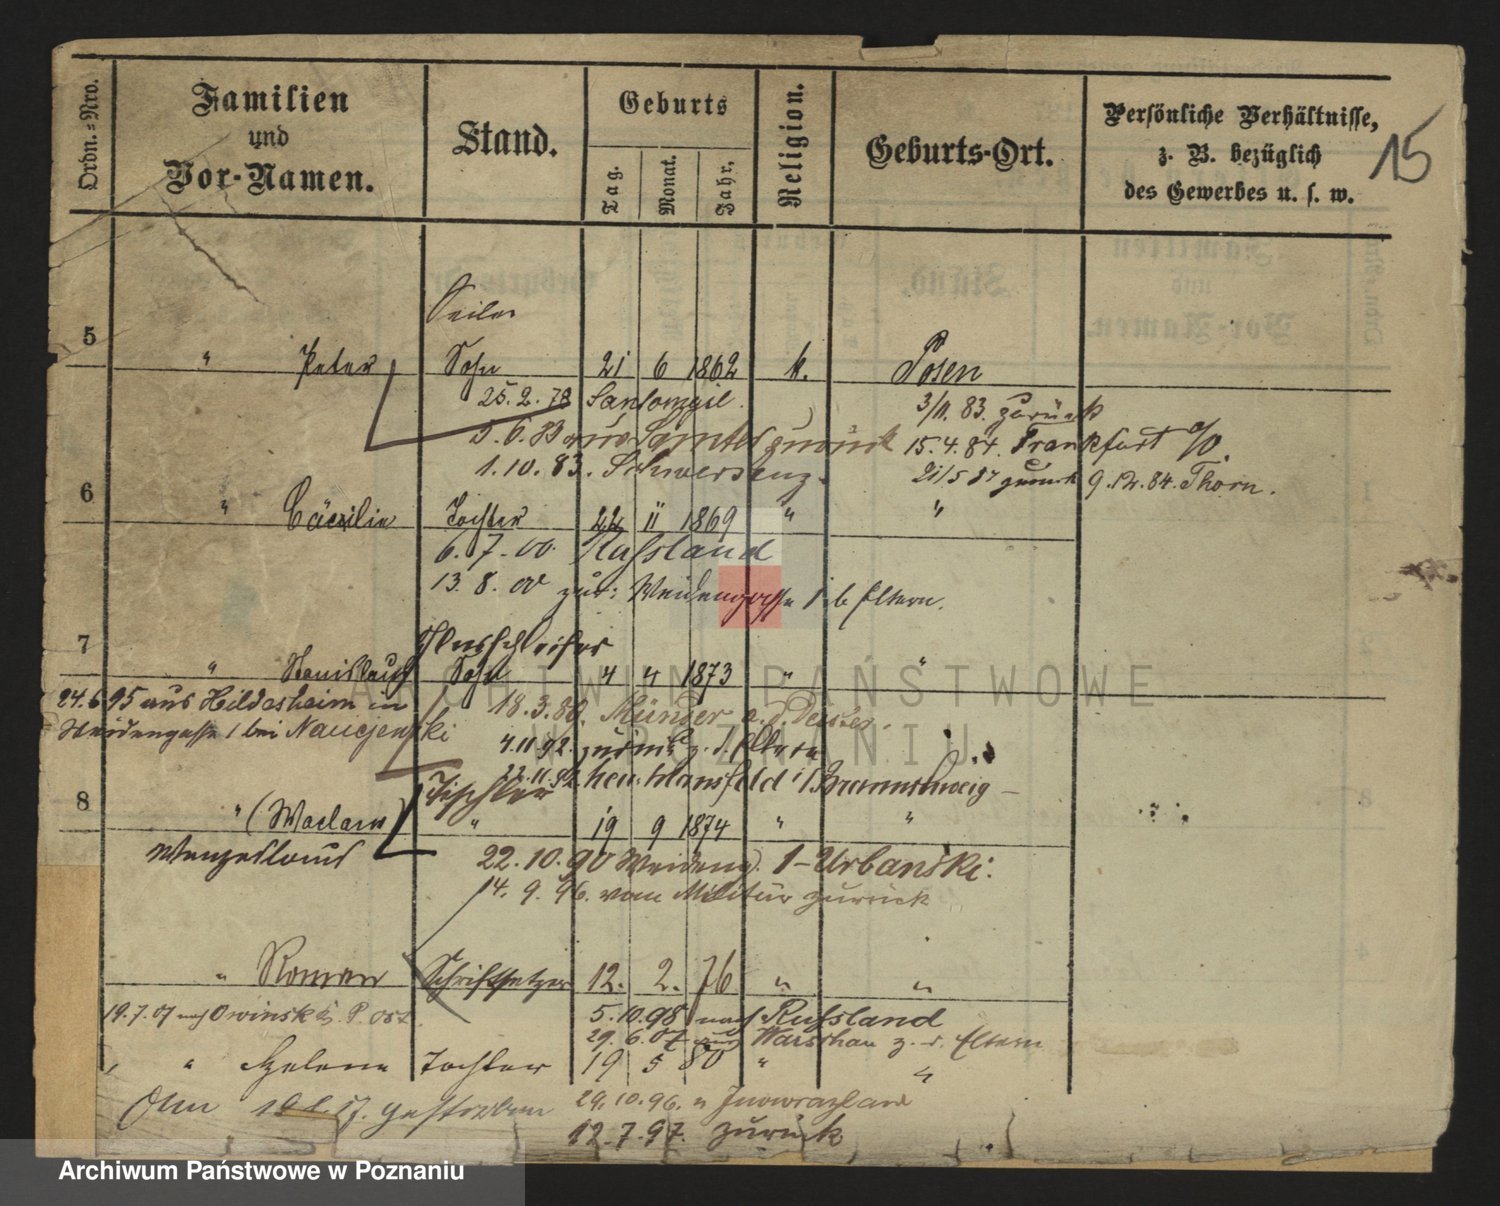 15
Ordn.-Nro.
Familien
und
Vor-Namen.
Stand.
Geburts
Tag.
Monat.
Jahr.
Religion.
Geburts-Ort.
Persönliche Verhältnisse,
z. B. bezüglich
des Gewerbes u. s. w.
Seiler
5 " Peter Sohn 21 6 1862 k. Posen
25.2.78 Santomyil. 3/11.83. zurück
5.6.83 aus Samter zurück 15.4.84. Frankfurt a/O.
1.10.83. Schwersenz. 21/5 87 zurück 9.12.84. Thorn.
6 " Cäcilie Tochter 22 11 1869 " "
6.7.00. Russland
13.8.00 zur: Weidengasse 1 b Eltern.
7 " Stanislaus Sohn 4 4 1873 " "
24.6.95 aus Hildesheim in
18.3.80. Münder a.d. Deister.
Weidengasse 1 bei
4.11.92. zurück z. d. Eltern
22.11.92. i/Braunschweig
Tischler
8 " (Waclaw) " 19 9 1874 " "
Wenzeslaus
22.10.90 Weideng. 1 - Urbanski.
14.9.96. vom Militär zurück
" Roman Schriftsetzer 12. 2. 76 " "
19.7.07 nach Owinsk Kr. P. Ost.
5.10.98 nach Russland
29.6.07 aus Warschau z. d. Eltern
" Helene Tochter 19 5 80 " "
gestorben
29.10.96. n Inowrazlaw
12.7.97. zurück
ARCHIWUM PAŃSTWOWE
W POZNANIU
Archiwum Państwowe w Poznaniu